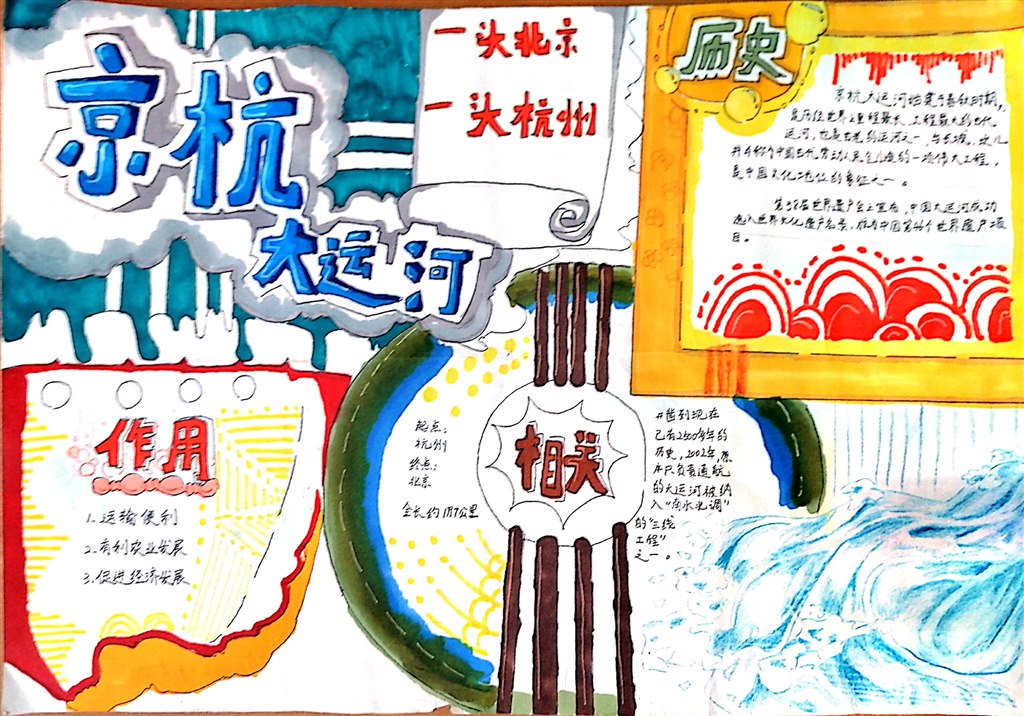 京杭
大运河
一头北京
一头杭州
历史
京杭大运河始建于春秋时期,
是历经世界上里程最长、工程最大的古代
运河,也是古老的运河之一,与长城、坎儿
井并称为中国古代
劳动人民
的一项伟大工程,
是中国文化地位的象征之一。
第38届世界遗产会上宣布,中国大运河成功
进入世界文化遗产名录,成为中国第46个世界遗产项
目。
作用
1.运输便利
2.有利农业发展
3.促进经济发展
相关
起点:
杭州
终点:
北京
全长约1797公里
开凿到现在
已有2500多年的
历史,2002年,原
本只负责通航
的大运河被纳
入“南水北调”
的“三线
工程”
之一。